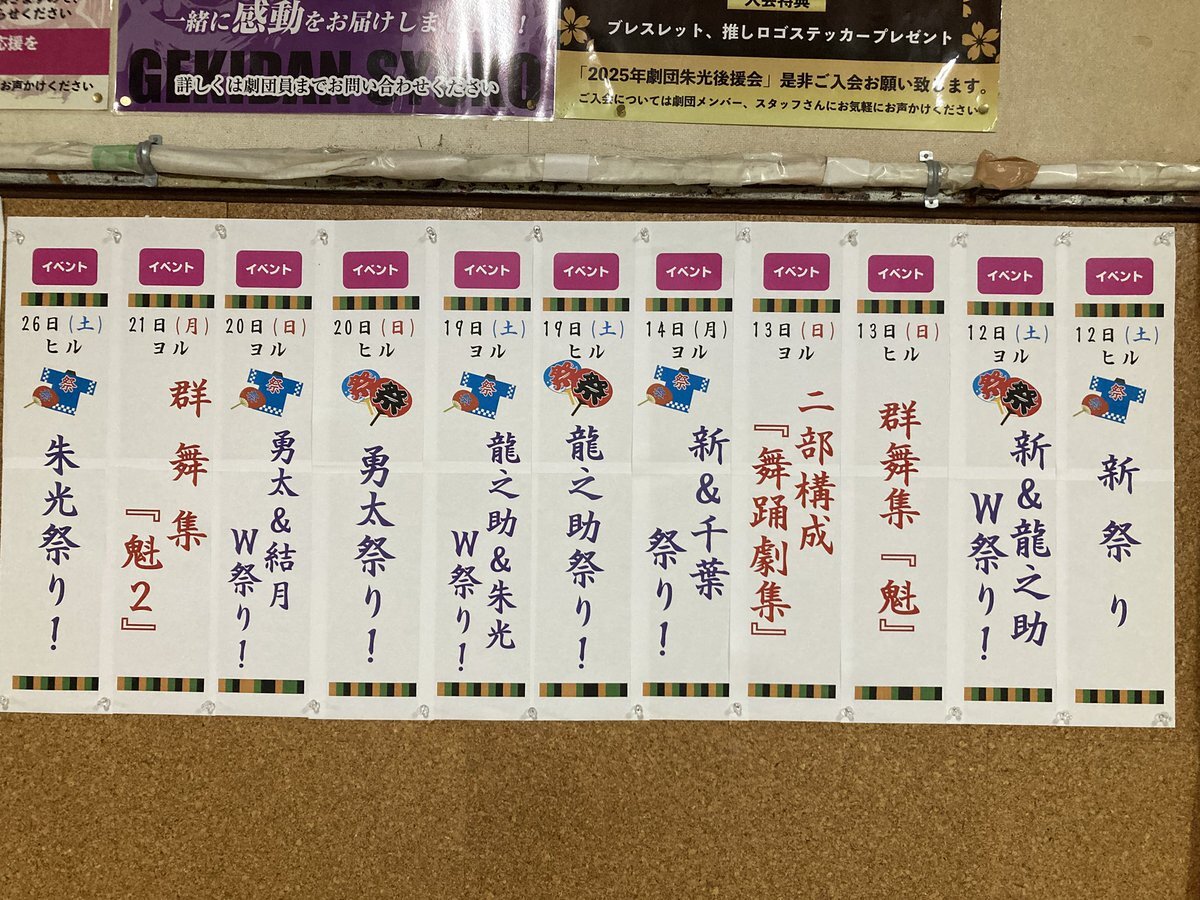 らせください
応援を
お声かけください
一緒に感動をお届けしま
！
GEKIDAN SY
詳しくは劇団員までお問い合わせください
入会特典
ブレスレット、推しロゴステッカープレゼント
「2025年劇団朱光後援会」是非ご入会お願い致します。
ご入会については劇団メンバー、スタッフさんにお気軽にお声かけください
イベント
12日(土)
ヒル
祭
新祭り
イベント
12日(土)
ヨル
祭
新&龍之助
W祭り!
イベント
13日(日)
ヒル
群舞集『魁』
イベント
13日(日)
ヨル
二部構成
『舞踊劇集』
イベント
14日(月)
ヨル
祭
新&千葉
祭り!
イベント
19日(土)
ヒル
祭
龍之助祭り!
イベント
19日(土)
ヨル
祭
龍之助&朱光
W祭り!
イベント
20日(日)
ヒル
祭
勇太祭り!
イベント
20日(日)
ヨル
祭
勇太&結月
W祭り!
イベント
21日(月)
ヨル
群舞集
『魁2』
イベント
26日(土)
ヒル
祭
朱光祭り!